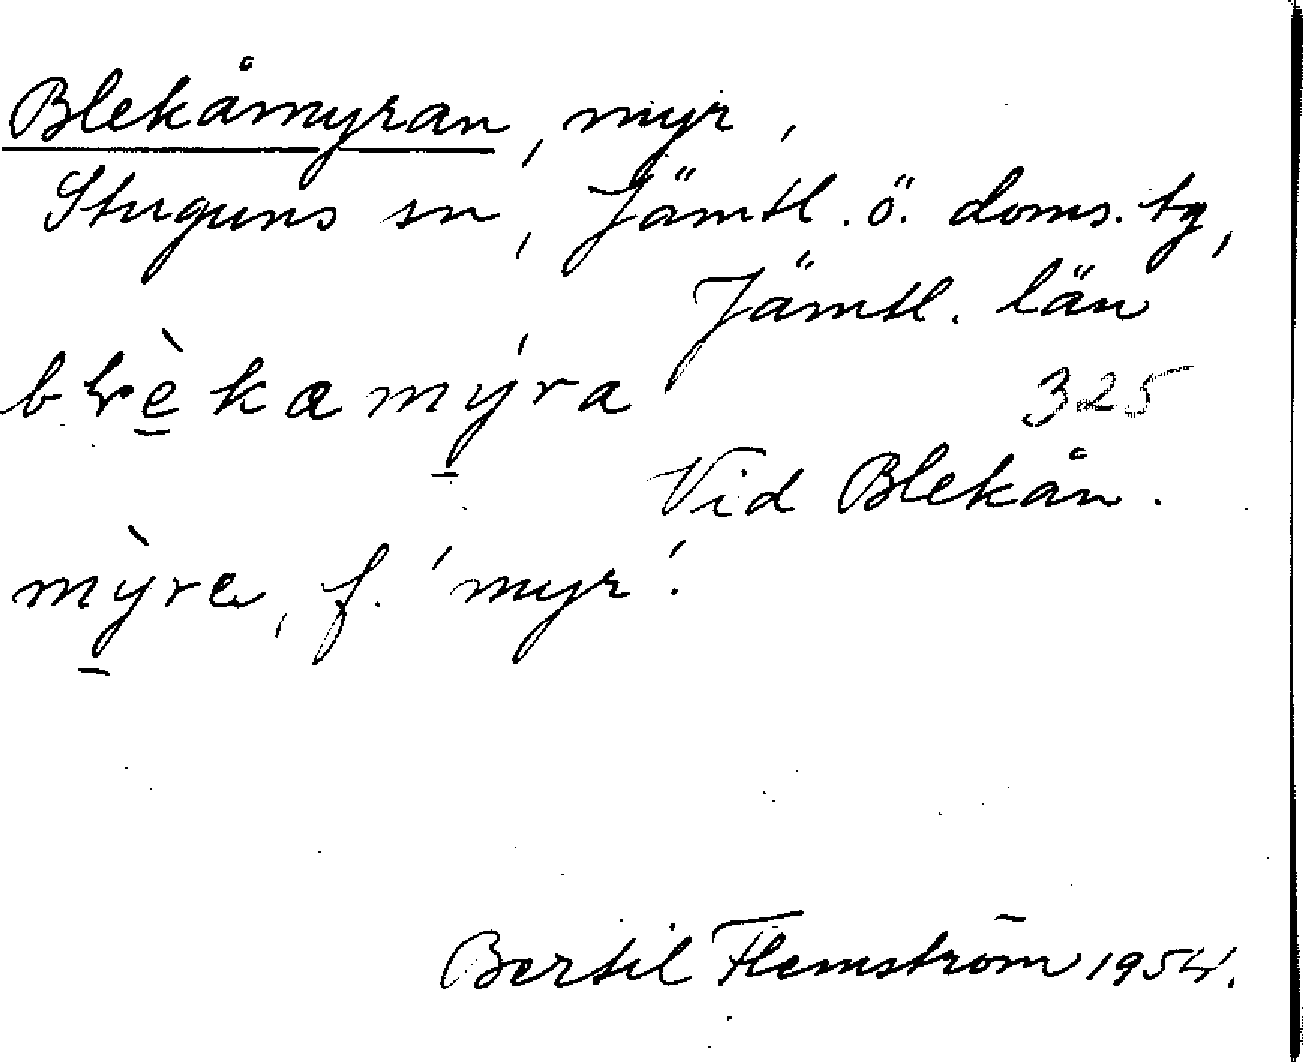 Blekåmyran, myr,
Stuguns sn, Jämtl. ö. doms. tg,
Jämtl. län
blè̠kamý̠ra
325
Vid Blekån.
mỳ̠ra, f. 'myr'.
Bertil Flemström 1954.